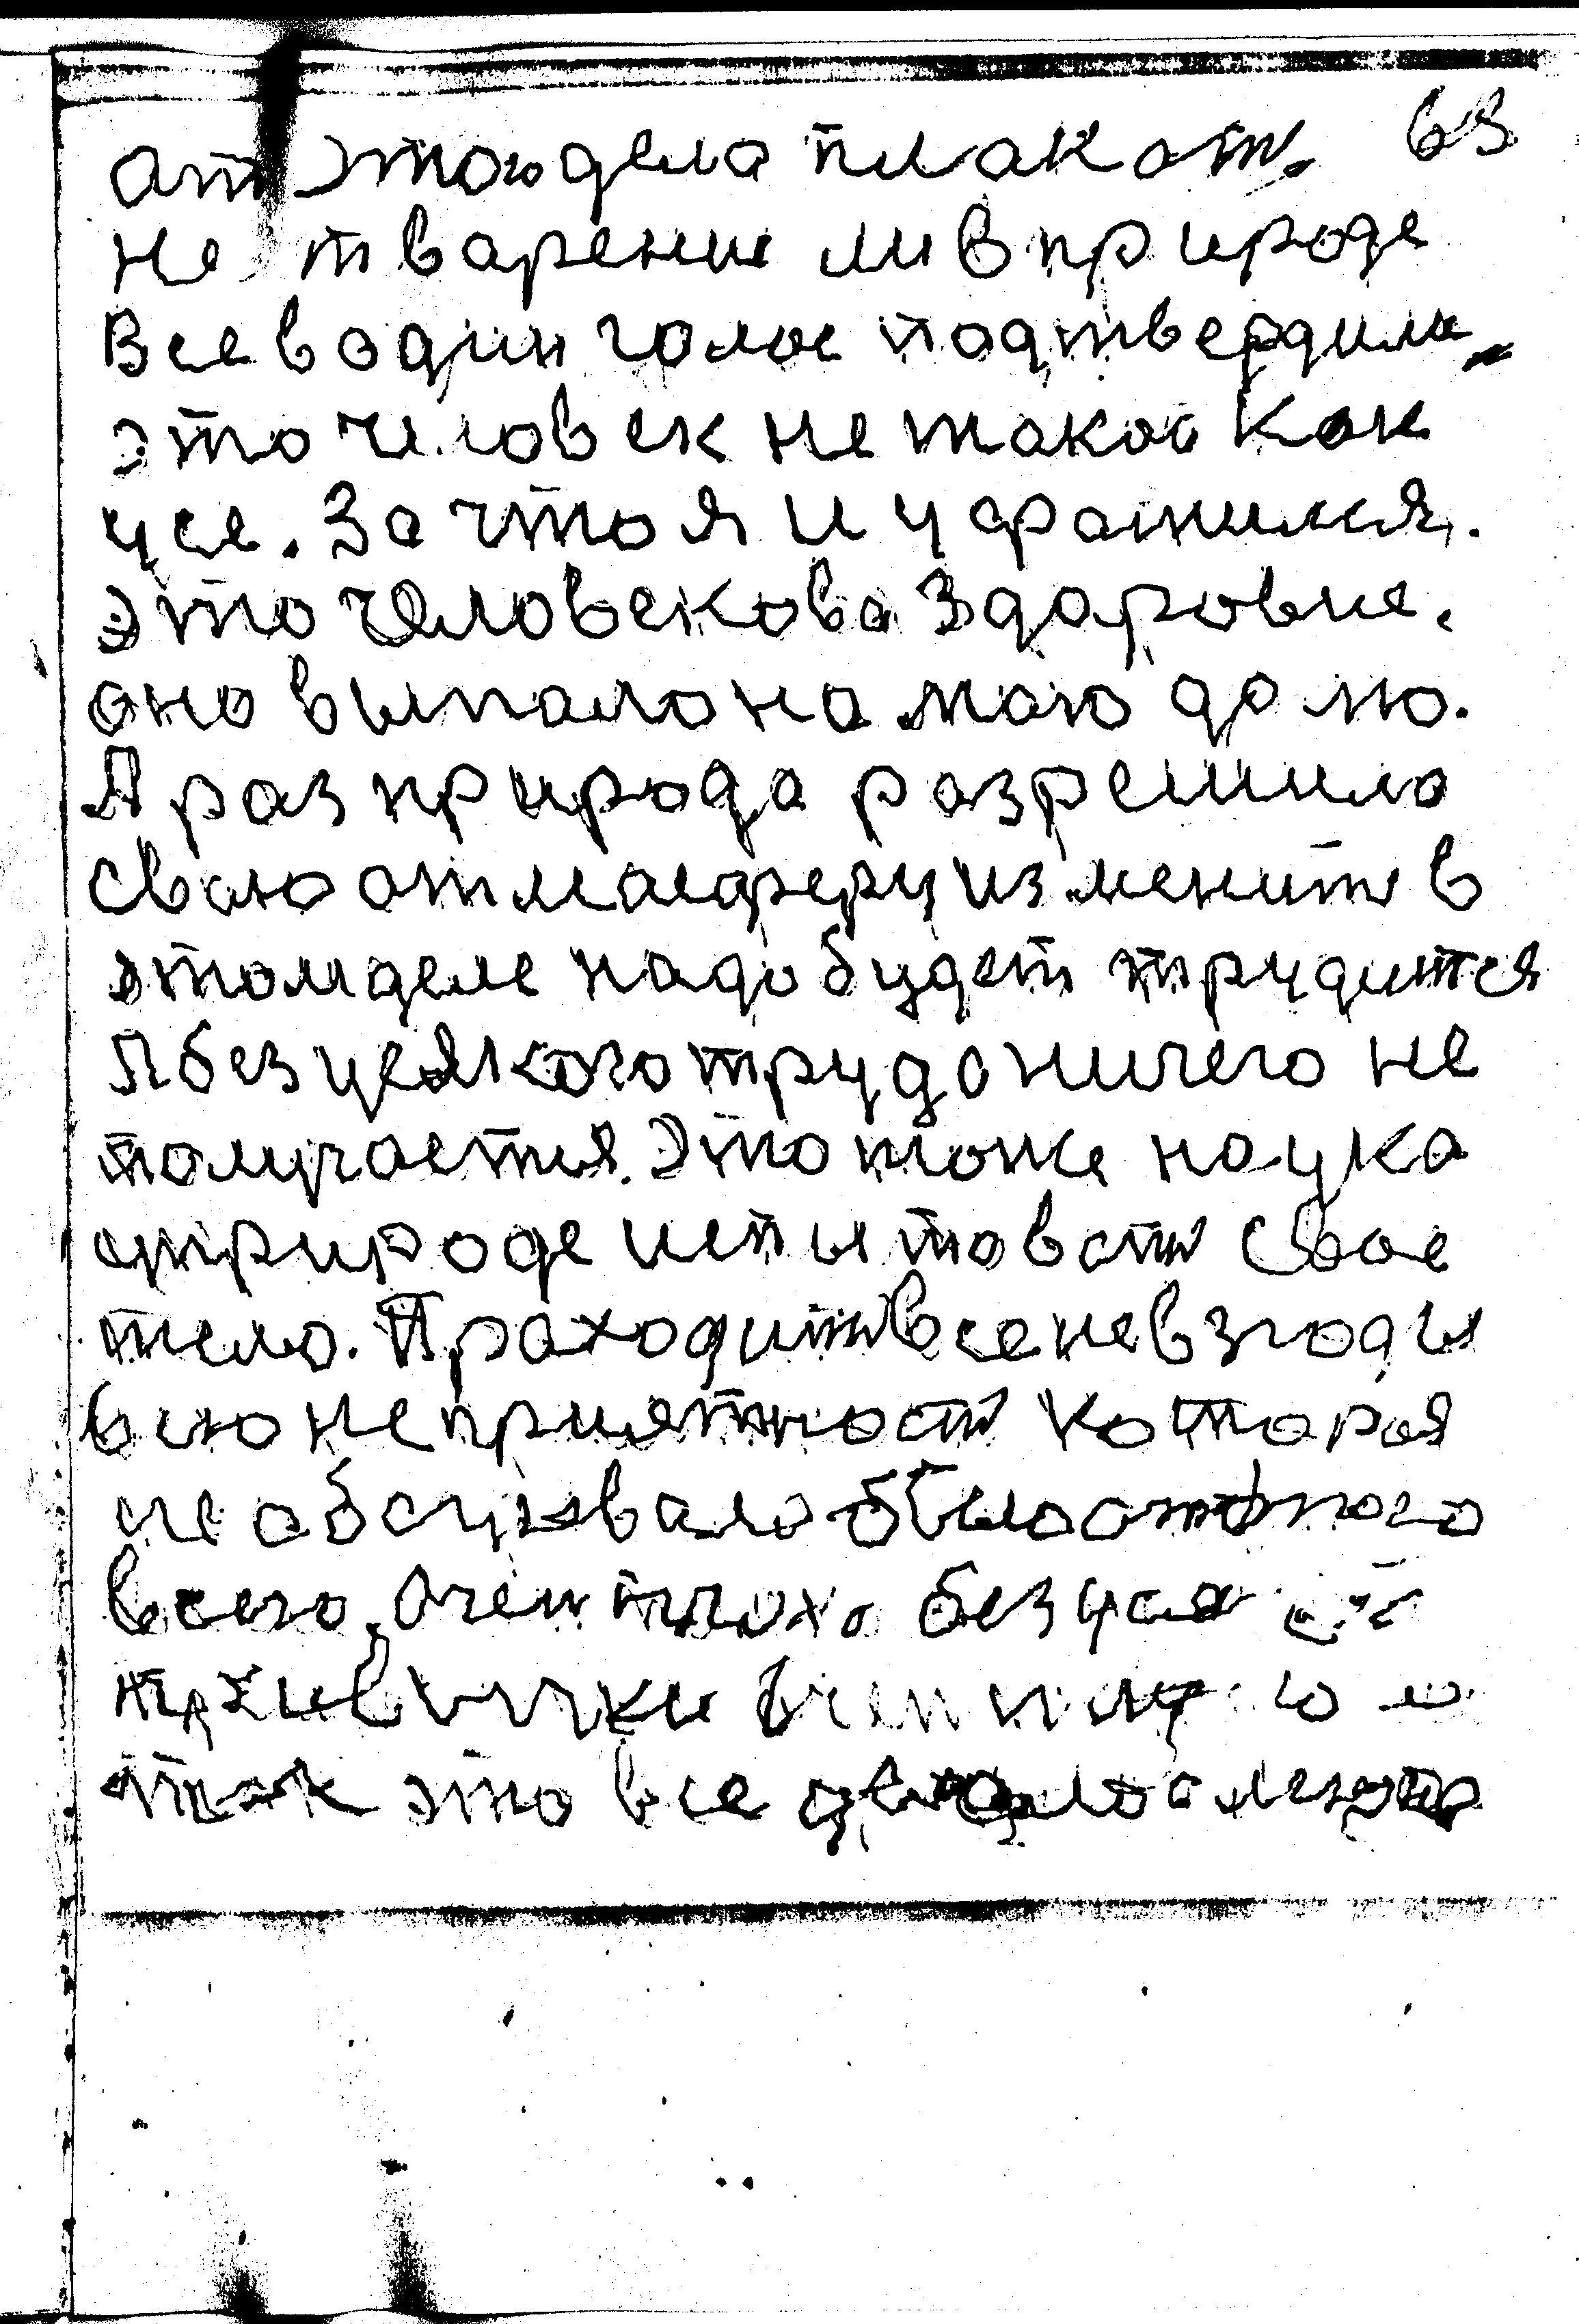 ат этого дела плакат. 63
не тварение ли в природе
Все в один голос подтвердили
это человек не такой как
усе. За что я и ухратился.
это человекова здаровие.
оно выпало на маю долю.
А раз природа разрешило
сваю атмасферу изменить в
этом деле надо будет трудится
А без усякого труда ничего не
получается. Это тоже наука
уприроде испытовать свое
тело. Праходить все невзгоды
всю неприятность которая
не обсуживало было
всего. Очень плохо без уся
привычки
так это все